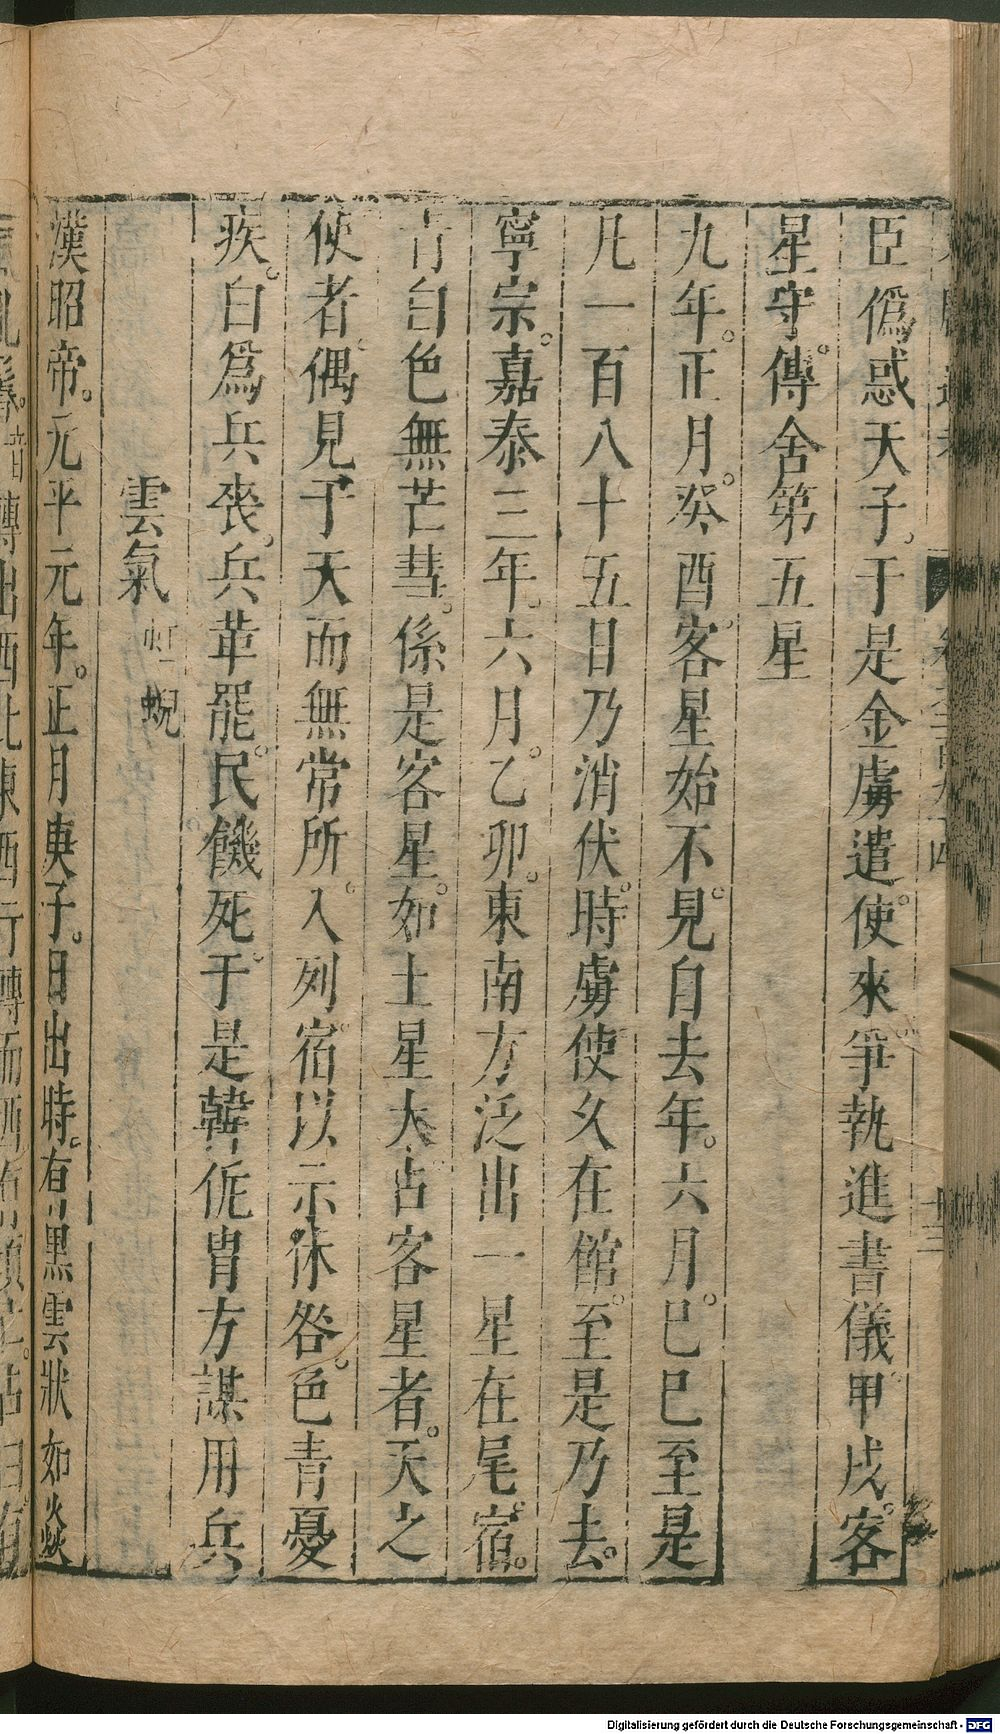 臣僞惑天子。于是金虜遣使。來爭執進書儀。甲戌。客
星守。傳舍第五星
九年。正月。癸酉。客星始不見。自去年。六月。己巳至是
凡一百八十五日乃消伏。時虜使久在館。至是乃去。
寧宗。嘉泰三年。六月。乙卯。東南方泛出一星在尾宿。
青白色無芒彗。係是客星。如土星大。占客星者。天之
使者。偶見于天而無常所。入列宿。以示休咎。色青憂
疾。白爲兵喪。兵革罷。民饑死。于是韓侂胄方謀用兵
雲氣 虹蜺
漢昭帝。元平元年。正月庚子。日出時。有黑雲狀如焱
Digitalisierung gefördert durch die Deutsche Forschungsgemeinschaft - DFG